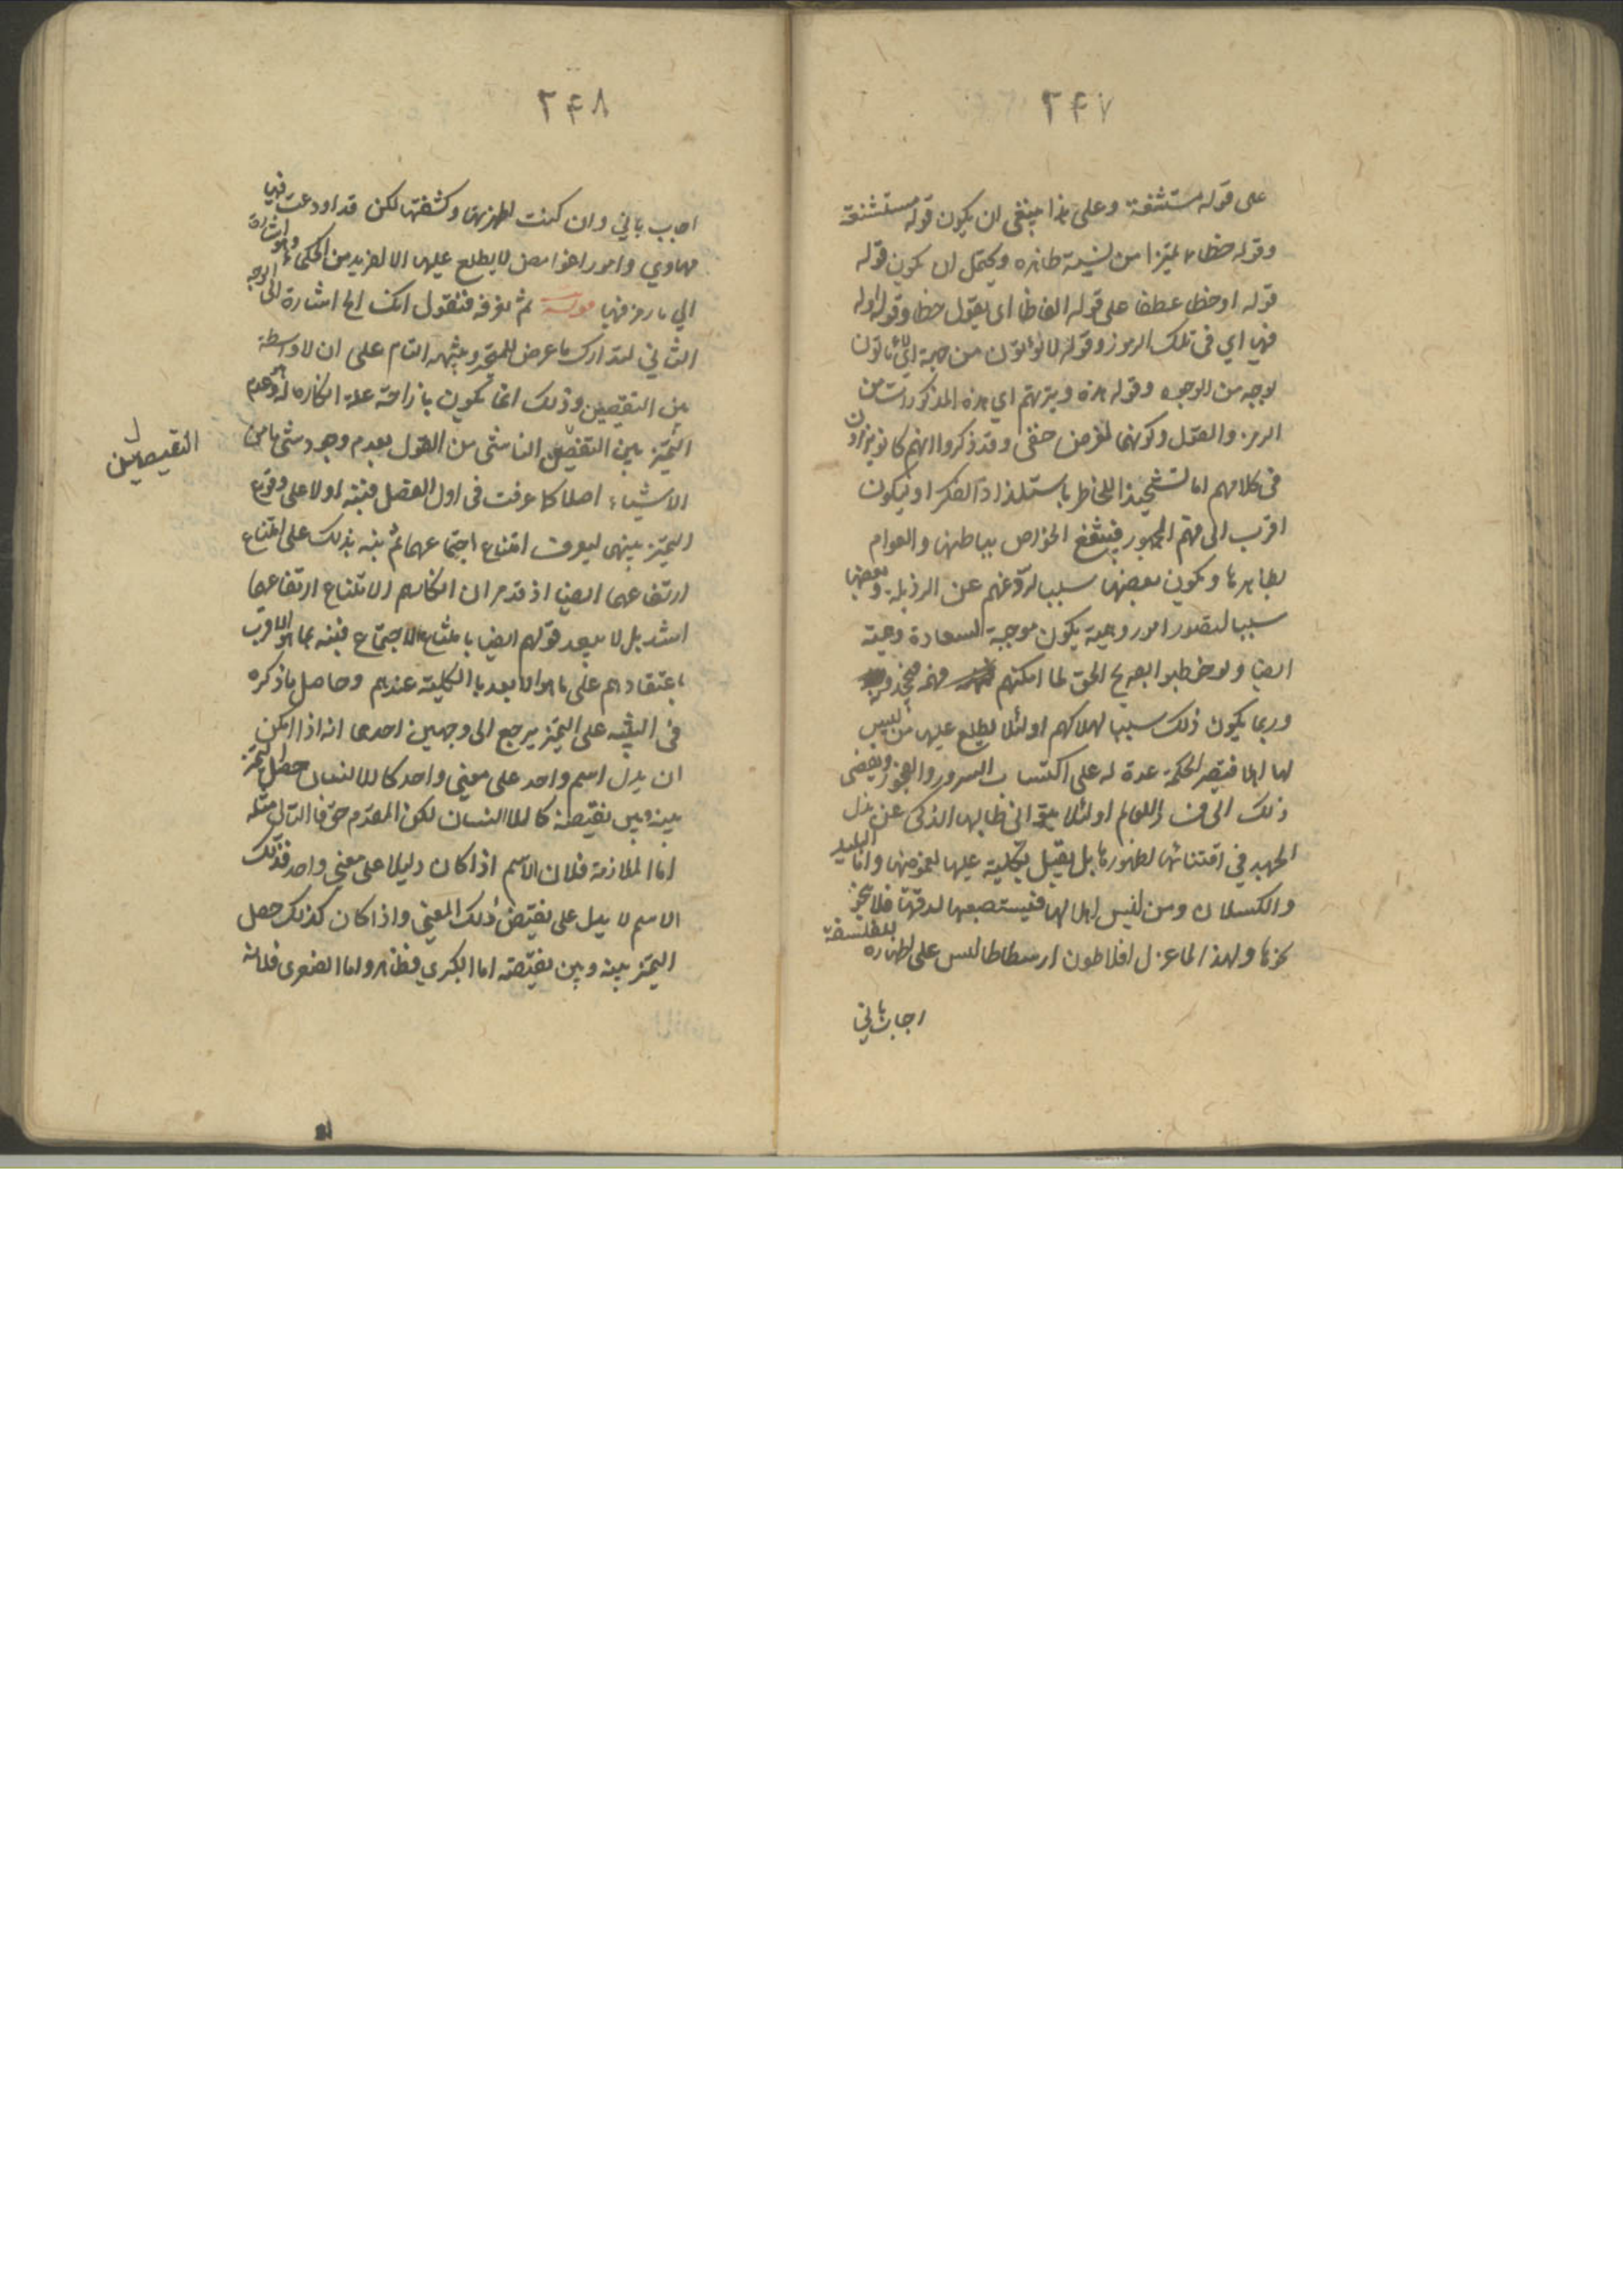 ٢۴٧
على قوله مستشنعة وعلى هذا ينبغى ان يكون قوله مستشنعة
وقوله خطاء تميزا من نسبة ظاهره ويحتمل ان يكون قوله
قوله او خطا عطفا على قوله الفاظا اى يقول خطا وقوله اوله
فيها اي فى تلك الرموز وقوله لا يؤتون من جهة اي لا ياتون
بوجه من الوجوه وقوله هذه وتيرتهم اي هذه المذكورات من
الرمز والقول وكونهما لغرض خفى وقد ذكروا انهم كانو يرمزون
فى كلامهم اما تشحيذا للخاطر باستلذاذ الفكر او ليكون
اقرب الى فهم الجمهور فينتفع الخواص بباطنها والعوام
بظاهرها ويكون بعضها سببا لردعهم عن الرذيلة وبعضها
سببا لتصور امور وهمية يكون موجبة السعادة وهمية
ايضا ولو خطبوا بصريح الحق لما امكنهم فهمه
وربما يكون ذلك سببا لهلاكهم او لئلا يطلع عليها من ليس
لها اهلا فيصير الحكمة عدة له على اكتساب الشرور والفجور ويفضى
ذلك الى فساد العالم او لئلا يتوانى طالبها الذكى عن بذل
الجهد في اقتنائها لظهورها بل يقبل بكليته عليها لغموضها واما البليد
والكسلان ومن ليس اهلا لها فيستصعبها لدقتها فلا
ولهذا لما عزل افلاطون ارسطاطاليس على اظهاره للفلسفة
اجاب باني
٢۴٨
اجاب باني وان كنت اظهرتها وكشفتها لكن قد اودعت فيها
مهاوي وامورا غوامض لا يطلع عليها الا الفريد من الحكماء وهو اشارة
الي ما رمز فيها قوله ثم نعرفه فنقول انك الخ اشارة الى الوجه
الثاني لتدارك ما عرض للمتحير وينبهه التام على ان لا واسطة
بين النقيضين وذلك انما يكون بازاحة علة انكاره له وهو عدم
التميز بين النقيضين الناشى من القول بعدم وجود شئ ما من
الاشياء اصلا كما عرفت فى اول الفصل فينبه اولا على وقوع
التميز بينهما ليعرف امتناع اجتماعهما ثم ينبه بذلك على امتناع
ارتفاعهما ايضا اذ قد مر ان انكارهم الامتناع ارتفاعهما
اشد بل لا يبعد قولهم ايضا بامتناع الاجتماع فينبه بما هو الاقرب
باعتقادهم على ما هو الابعد بالكلية عندهم وحاصل ما ذكره
فى التنبيه على التميز يرجع الى وجهين احدهما انه اذا امكن
ان يدل اسم واحد على معنى واحد كالانسان حصل التميز
بينه وبين نقيضه كاللاانسان لكن المقدم حق فالتالى مثله
اما الملازمة فلان الاسم اذا كان دليلا على معنى واحد فذلك
الاسم لا يدل على نقيض ذلك المعنى واذا كان كذلك حصل
التميز بينه وبين نقيضه اما الكبرى فظاهر واما الصغرى فلانه
النقيضين